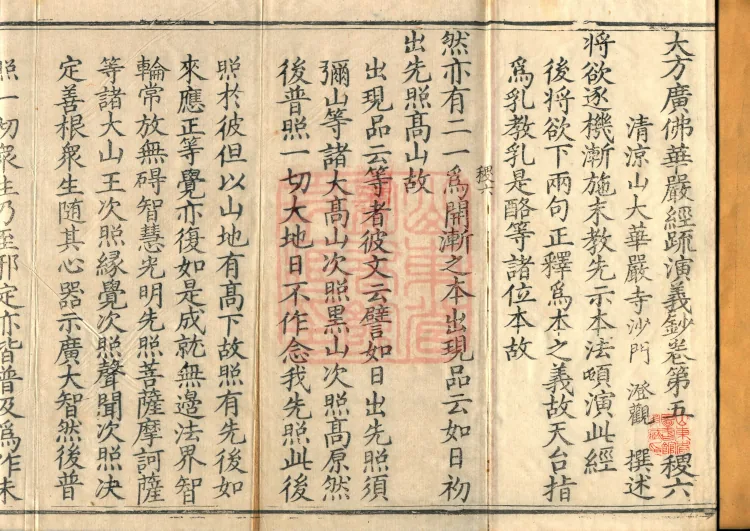 大方廣佛華嚴經䟽演義鈔卷第五 稷六
清涼山大華嚴寺沙門 澄觀 撰述
將欲逐機漸施末教先示本法頓演此經
後將欲下兩句正釋爲本之義故天台指
爲乳教乳是酪等諸位本故
稷六
然亦有二一爲開漸之本出現品云如日初
出先照髙山故
出現品云等者彼文云譬如日出先照須
彌山等諸大髙山次照黒山次照髙原然
後普照一切大地日不作念我先照此後
照於彼但以山地有髙下故照有先後如
來應正等覺亦復如是成就無邊法界智
輪常放無碍智慧光明先照菩薩摩訶薩
等諸大山王次照縁覺次照聲聞次照决
定善根衆生隨其心器示廣大智然後普
照一切衆生乃至邪定亦皆普及爲作未